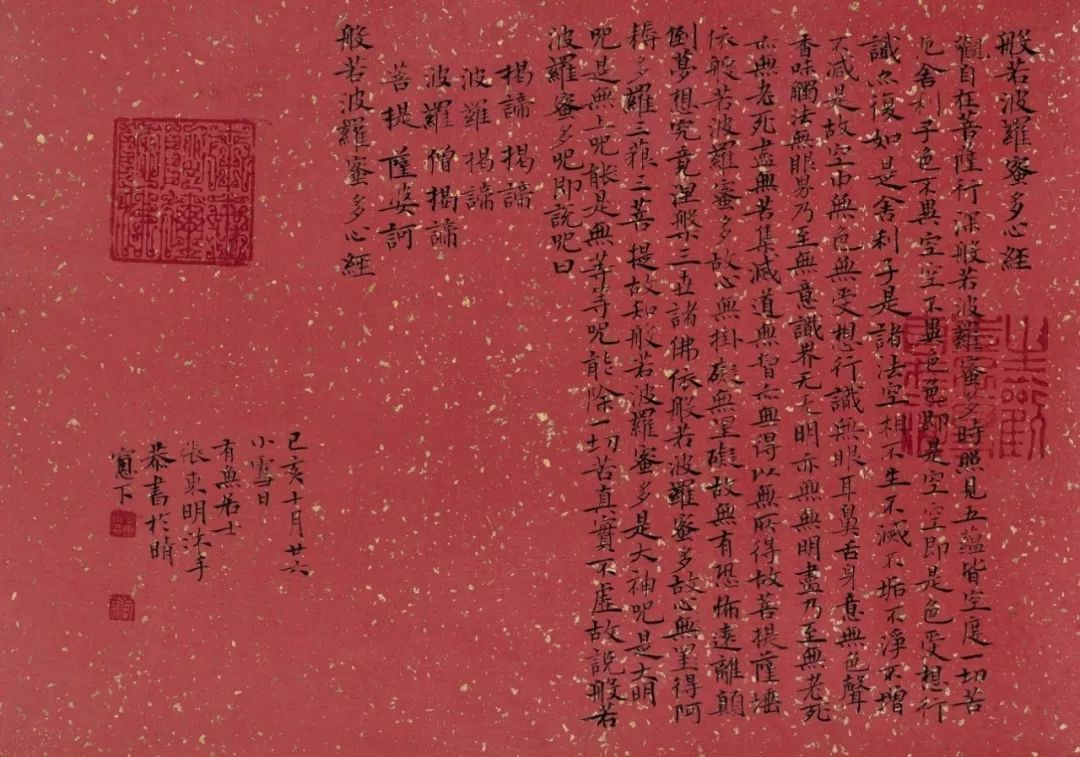 般若波羅蜜多心經
觀自在菩薩行深般若波羅蜜多時照見五蘊皆空度一切苦
厄舍利子色不異空空不異色色即是空空即是色受想行
識亦復如是舍利子是諸法空相不生不滅不垢不淨不增
不減是故空中無色無受想行識無眼耳鼻舌身意無色聲
香味觸法無眼界乃至無意識界无无明亦無無明盡乃至無老死
亦無老死盡無苦集滅道無智亦無得以無所得故菩提薩埵
依般若波羅蜜多故心無掛礙無罣礙故無有恐怖遠離顛
倒夢想究竟涅槃三世諸佛依般若波羅蜜多故心無罣得阿
耨多羅三藐三菩提故知般若波羅蜜多是大神呪是大明
呪是無上呪能是無等等呪能除一切苦真實不虛故說般若
波羅蜜多呪即說呪曰
揭諦揭諦
波羅揭諦
波羅僧揭諦
菩提薩婆訶
般若波羅蜜多心經
己亥十月廿六
小雪日
有無居士
張東明沐手
恭書於晴
窗下